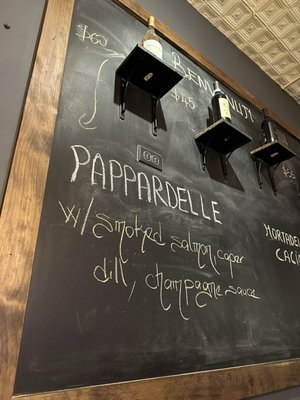 BENVENUTI
$60
$45
PAPPARDELLE
w/ smoked salmon, caper
dill, champagne sauce
MORTADEL
CACI